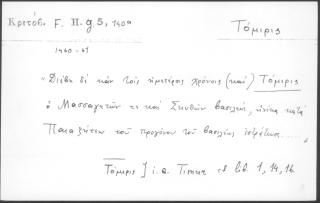 Κριτόβ. F. H. g. 5, 140a Τόμιρις
1460-61
" Διέβη δὲ κἀν τοῖς ἡμετέροις χρόνοις (καὶ) Τόμιρις
ὁ Μασσαγετῶν τε καὶ Σκυθῶν βασιλεύς, κατὰ
Παιαζήτεω τοῦ προγόνου τοῦ βασιλέως ἐστράτευσε....
Τόμιρις ] i.e. Timur cf lib. 1, 14, 16